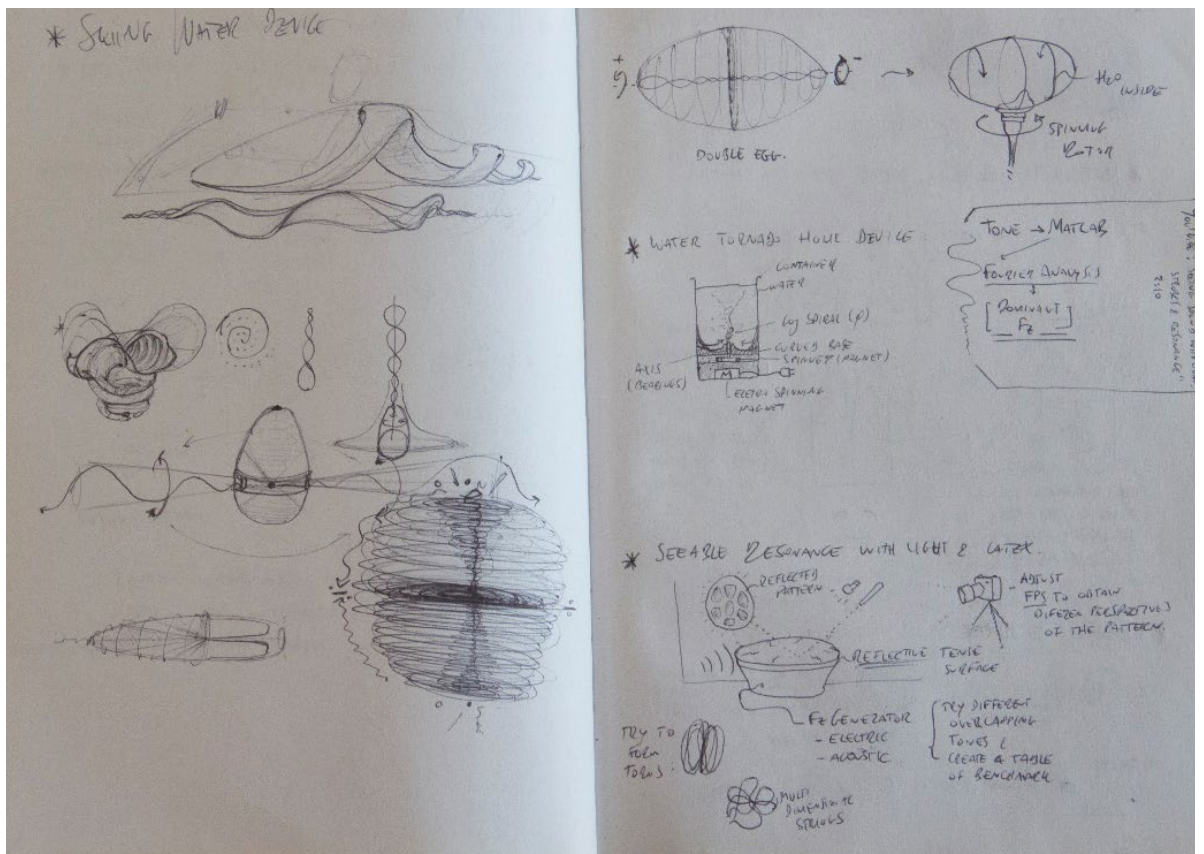 * SKIING WATER DEVICE
+
-
DOUBLE EGG.
H2O
INSIDE
SPINNING
ROTOR
* WATER TORNADO HOME DEVICE
CONTAINER
WATER
LOG SPIRAL (φ)
CURVED BASE
SPINNER (MAGNET)
AXIS
(BEARINGS)
M
ELETRIC SPINNING
MAGNET
TONE → MATLAB
FOURIER ANALYSIS
DOMINANT
Fz
RESONANCE"
* SEEABLE RESONANCE WITH LIGHT & LATEX.
REFLECTED
PATTERN
ADJUST
FPS TO OBTAIN
DIFEREN PERSPECTIVES
OF THE PATTERN.
REFLECTIVE TENSE
SURFACE
Fz GENERATOR
- ELECTRIC
- ACOUSTIC
TRY DIFFERENT
OVERLAPPING
TONES &
CREATE A TABLE
OF BENCHMARK
TRY TO
FORM
TORUS:
MULTI
STRINGS